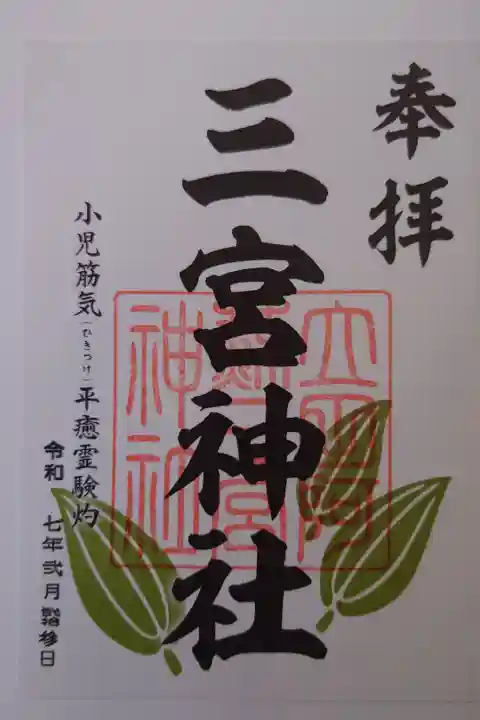 奉拝
三宮神社
小児筋気(ひきつけ)平癒霊験灼
令和 七年弐月